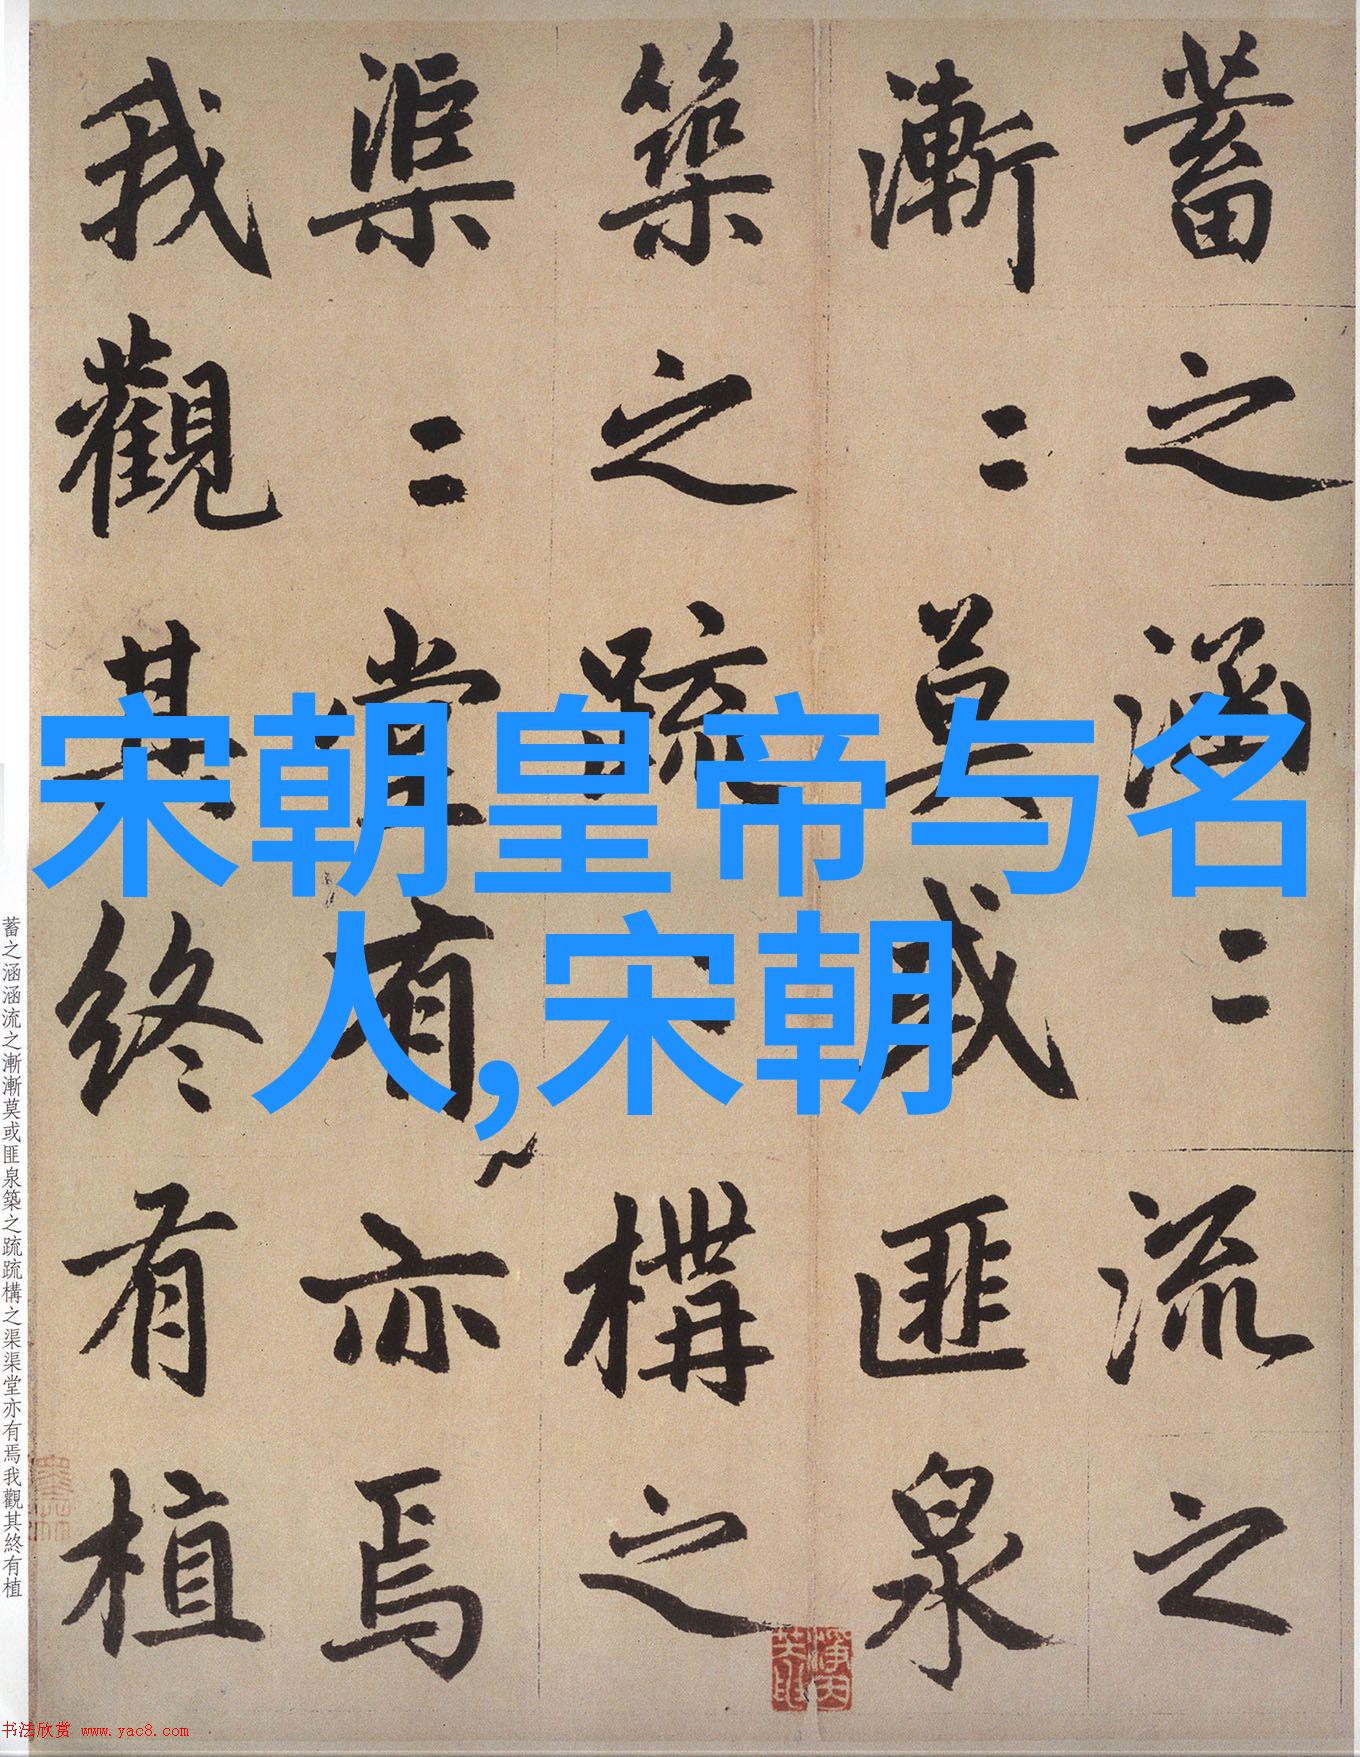 蓄之涵〻流之
漸〻莫或匪泉
築之疏〻構之
渠〻堂有亦焉
我觀其終有植
宋朝皇帝与名
人,宋朝
蓄之涵涵流之漸漸莫或匪泉築之疏疏構之渠渠堂亦有焉我觀其終有植
书法欣赏 www.yac8.com